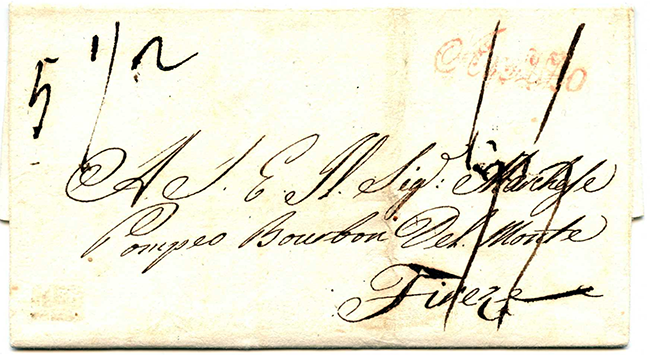 5 1/2
A. S. E. Il Sig.r Marchese
Pompeo Bourbon Del Monte
Firenze